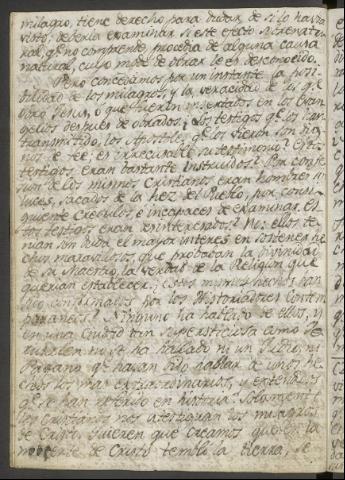 milagro, tiene derecho para dudar de si lo havia
visto, deberia examinar si este efecto sobrenatu
ral, qe. no comprende, procedia de alguna causa
natural, cuio modo de obrar le es desconocido.
Pero concedamos por un instante la posi
bilidad de los milagros, y la veracidad de los qe.
obro Jesus, o que fueron insertados en los Evan
gelios despues de obrados; los testigos qe. los han
transmitido, los Apostoles, qe. los vieron son dig
nos de fee; es irrecusable su testimonio? Estos
testigos eran bastante instruidos? Por confe
sion de los mismos Cristianos eran hombres sin
luces, sacados de la hez del Pueblo, por consi
guiente credulos, e incapaces de examinar. Es
tos testigos eran desinteresados? No: ellos te
nian sin duda el mayor interes en sostener he
chos maravillosos, que probaban la divinidad
de su Maestro, la verdad de la Religion que
querian establecer. Estos mismos hechos han
sido confirmados por los Historiadores Contem
poraneos? Ninguno ha hablado de ellos, y
en una Ciudad tan supersticiosa como Je
rusalen no se ha hallado ni un Judio, ni
Pagano qe. hayan oido hablar de unos he
chos los mas extraordinarios, y extendidos
qe. se han referido en historia. Solamente
los Cristianos nos atestiguan los milagros
de Cristo. Quieren que creamos que en la
muerte de Cristo temblo la tierra, se